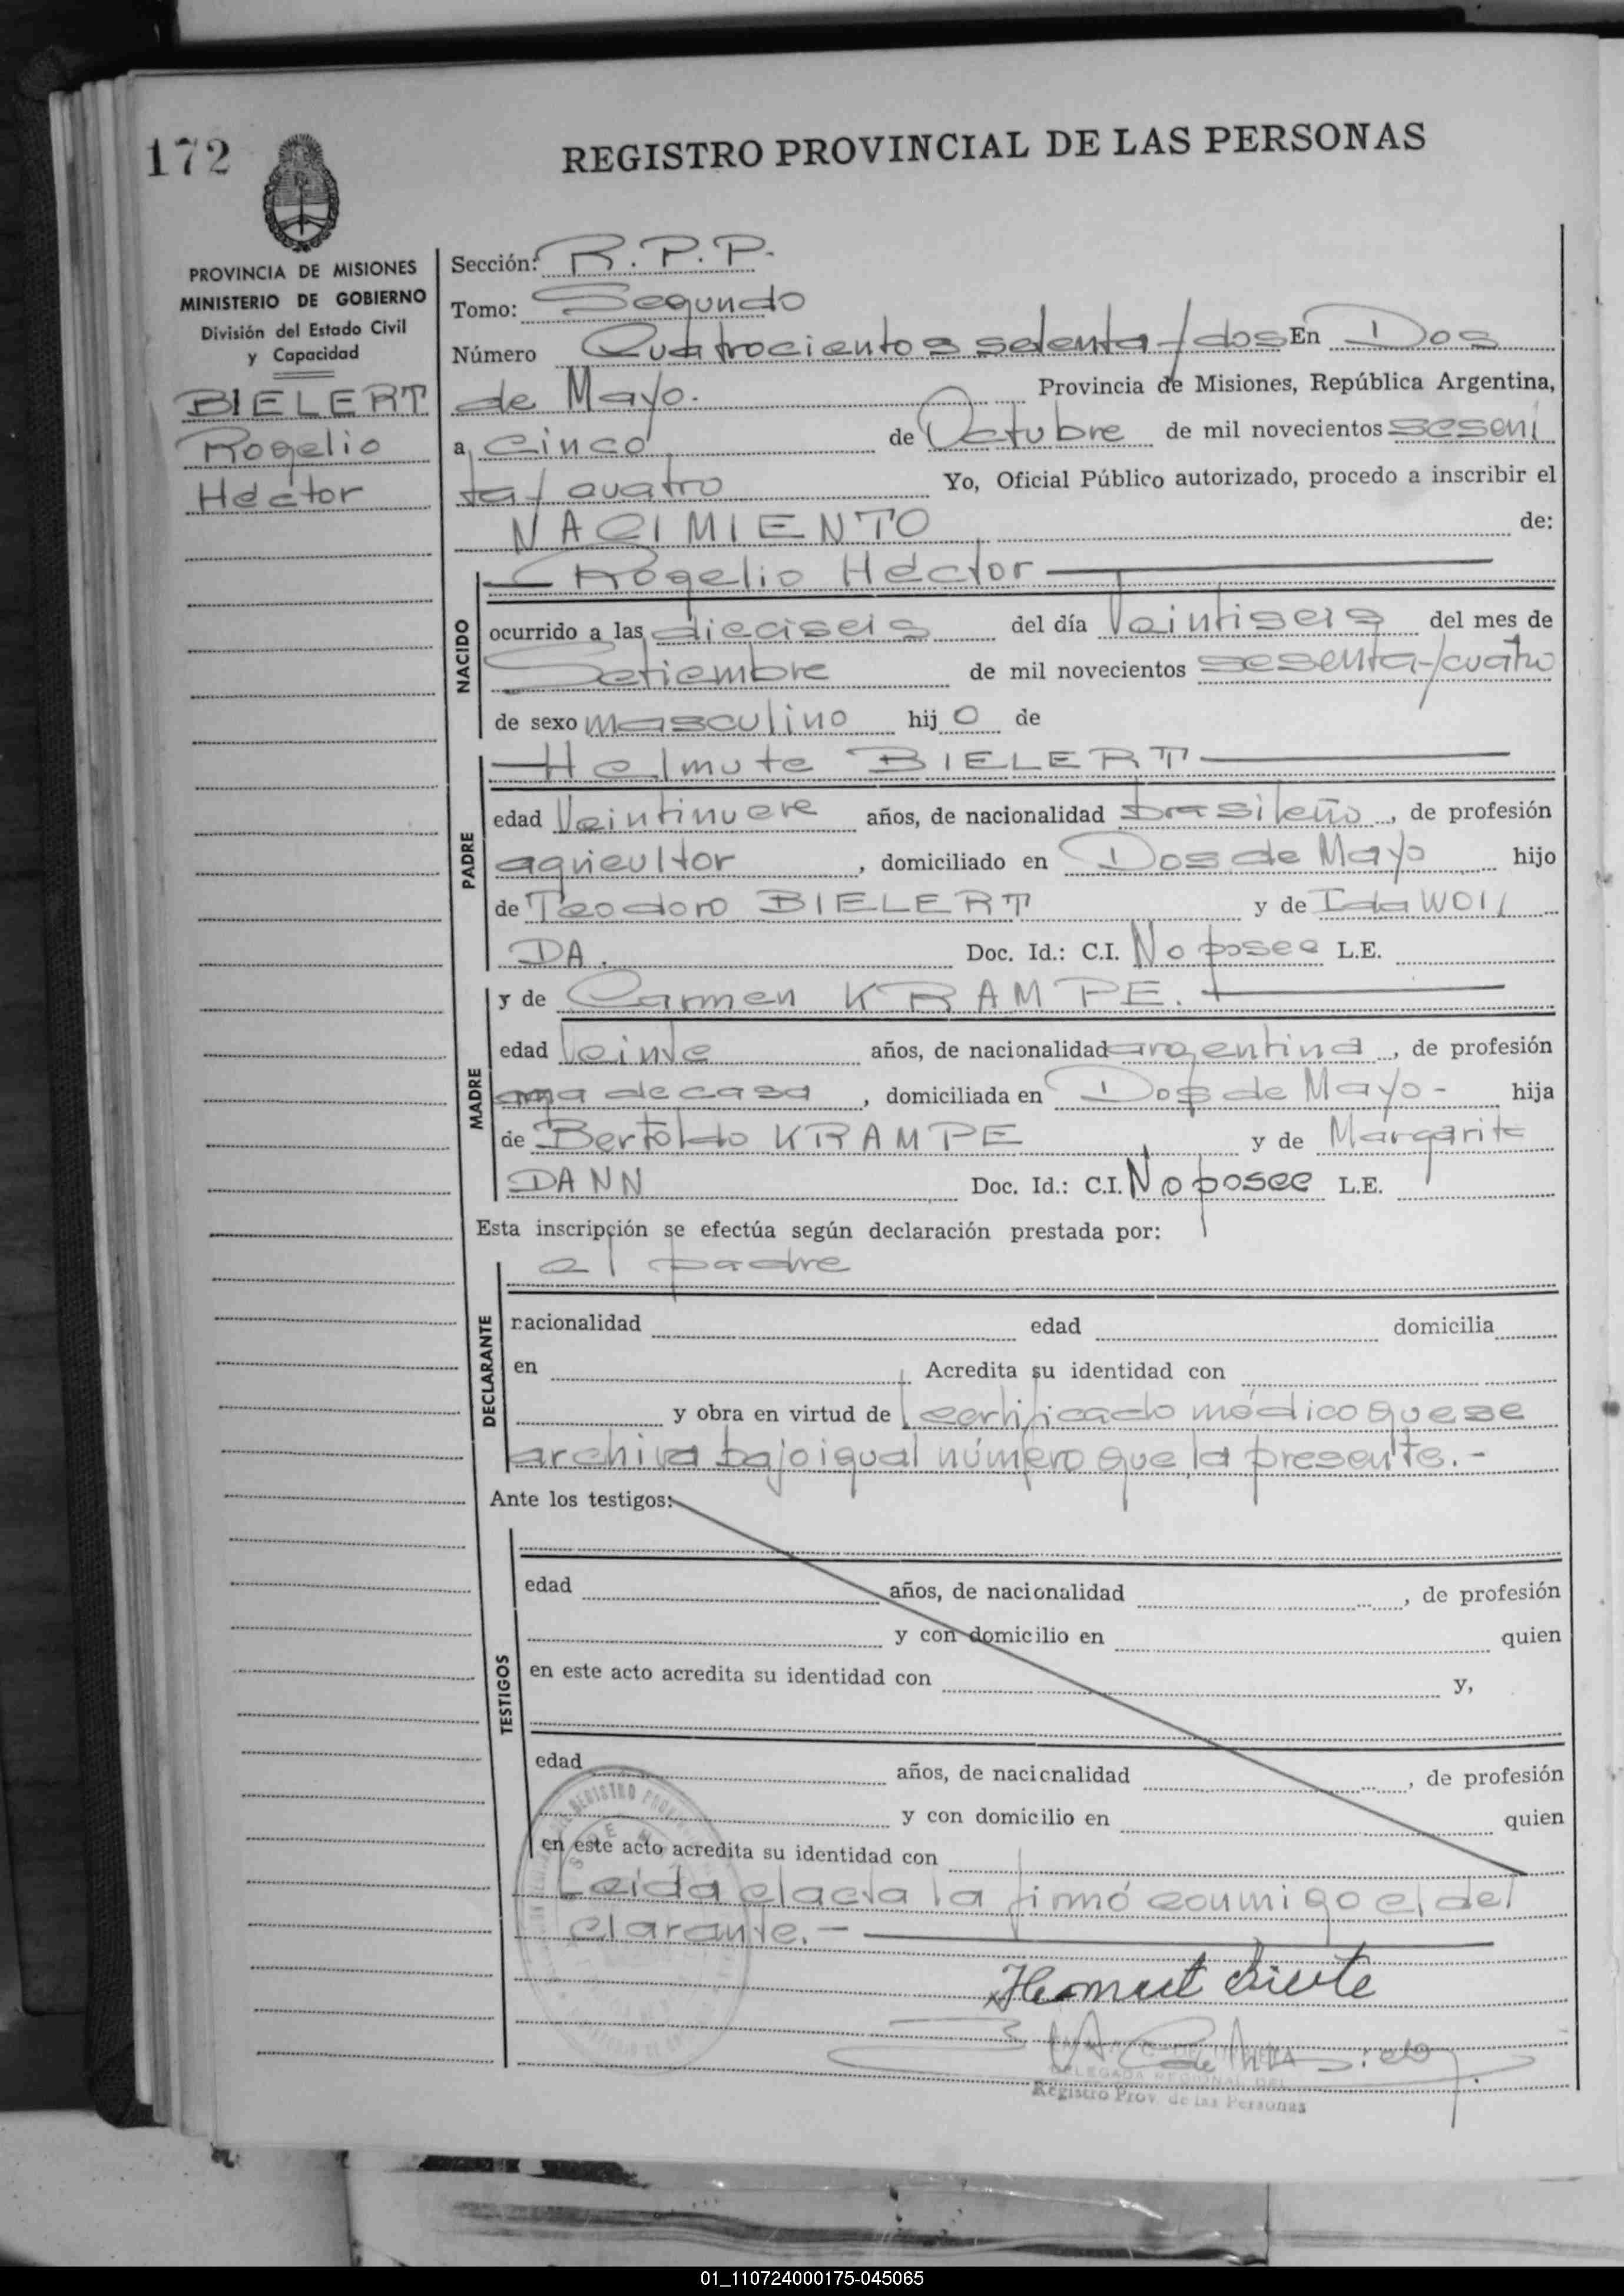 172
REGISTRO PROVINCIAL DE LAS PERSONAS
PROVINCIA DE MISIONES
MINISTERIO DE GOBIERNO
División del Estado Civil
y Capacidad
BIELERT
Rogelio
Héctor
Sección: R.P.P.
Tomo: Segundo
Número Cuatrocientos setenta/dos En Dos
de Mayo. Provincia de Misiones, República Argentina,
a cinco de Octubre de mil novecientos sesen/
ta/cuatro Yo, Oficial Público autorizado, procedo a inscribir el
NACIMIENTO de:
NACIDO
Rogelio Héctor
ocurrido a las dieciseis del día Veintiseis del mes de
Setiembre de mil novecientos sesenta/cuatro
de sexo masculino hij o de
PADRE
Helmute BIELERT
edad Veintinueve años, de nacionalidad brasileño, de profesión
agricultor, domiciliado en Dos de Mayo hijo
de Teodoro BIELERT y de Ida WOI/
DA. Doc. Id.: C.I. No posee L.E.
MADRE
y de Carmen KRAMPE.
edad Veinte años, de nacionalidad argentina, de profesión
ama de casa, domiciliada en Dos de Mayo- hija
de Bertoldo KRAMPE y de Margarita
DANN Doc. Id.: C.I. No posee L.E.
Esta inscripción se efectúa según declaración prestada por:
DECLARANTE
el padre
nacionalidad edad domicilia
en Acredita su identidad con
y obra en virtud de certificado médico que se
archiva bajo igual número que la presente.-
Ante los testigos:
TESTIGOS
edad años, de nacionalidad , de profesión
y con domicilio en quien
en este acto acredita su identidad con y,
edad años, de nacionalidad , de profesión
y con domicilio en quien
en este acto acredita su identidad con
Leída el acta la firmó conmigo el de/
clarante.-
DELEGADA REGIONAL DEL
Registro Prov. de las Personas
01_110724000175-045065